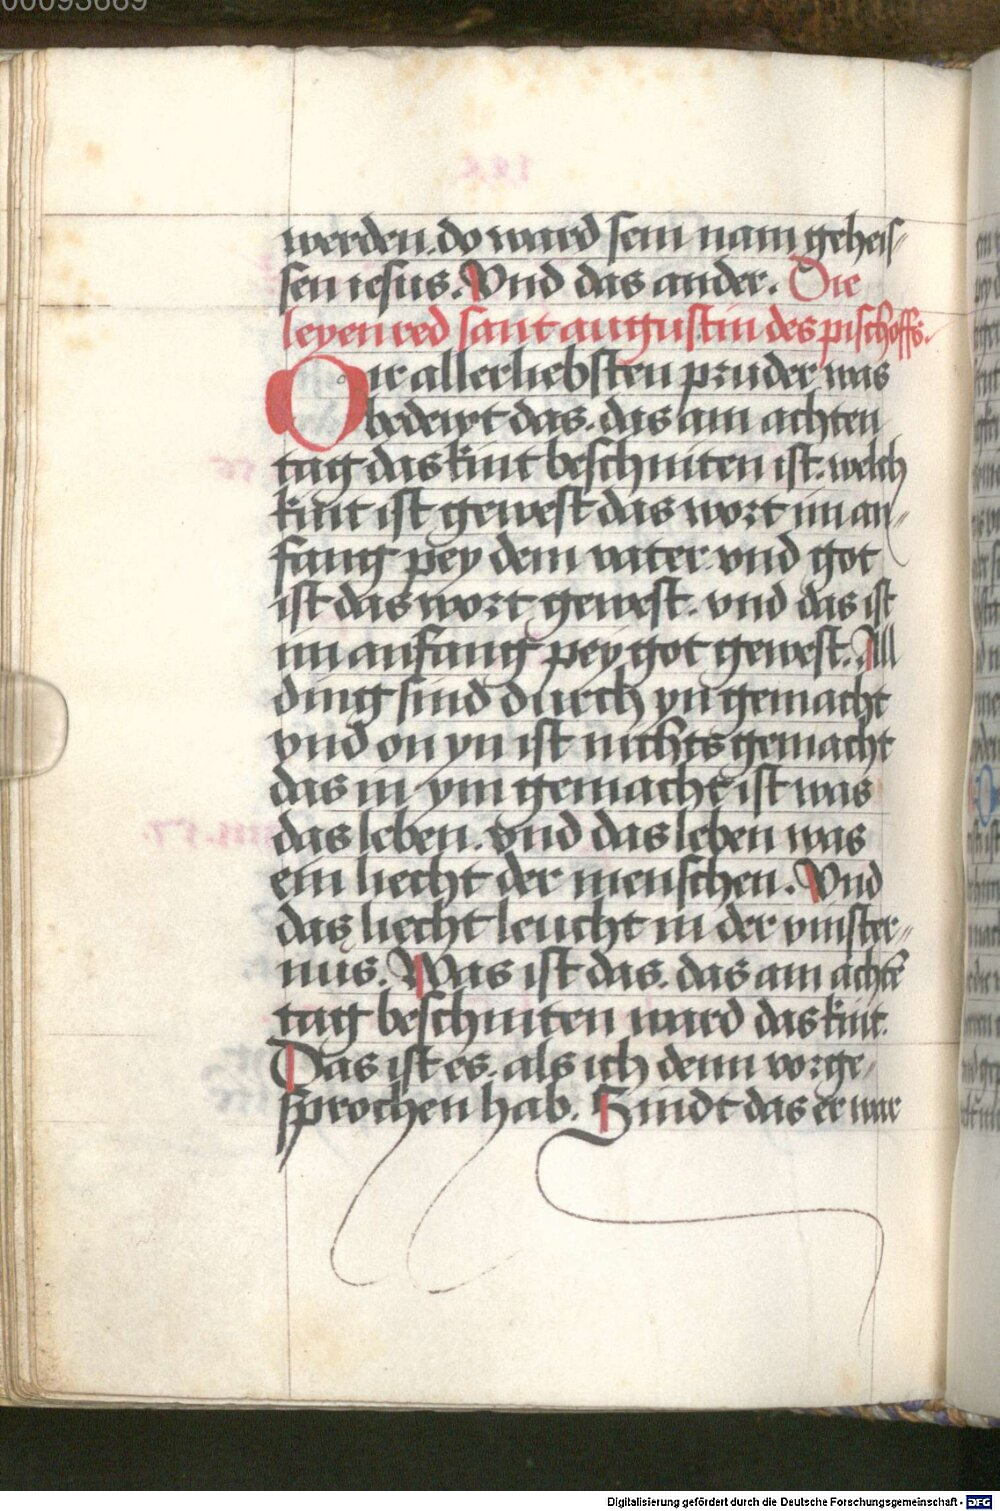 00093689
werden. do ward sein nam geheis-
sen iesus. Vnd das ander. Die
leyen red sant augustin des pischoffs.
Oir allerliebsten pruder was
bedewt das. das am achten
tag das kint beschniten ist. welch
kint ist gewest das wort im an-
fang pey dem vater vnd got
ist das wort gewest. vnd das ist
im anfang pey got gewest. All
ding sind durch yn gemacht
vnd on yn ist nichts gemacht
das in ym gemacht ist was
das leben. vnd das leben was
ein liecht der menschen. Vnd
das liecht leucht in der vinster-
nus. Was ist das. das am achtē
tag beschniten ward das kint.
Das ist es. als ich denn vorge-
sprochen hab. Sindt das er war
Digitalisierung gefördert durch die Deutsche Forschungsgemeinschaft - DFG